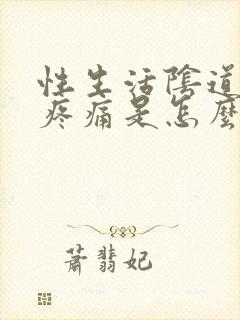 性生活陰道
疼痛是怎麼
蕭翡妃